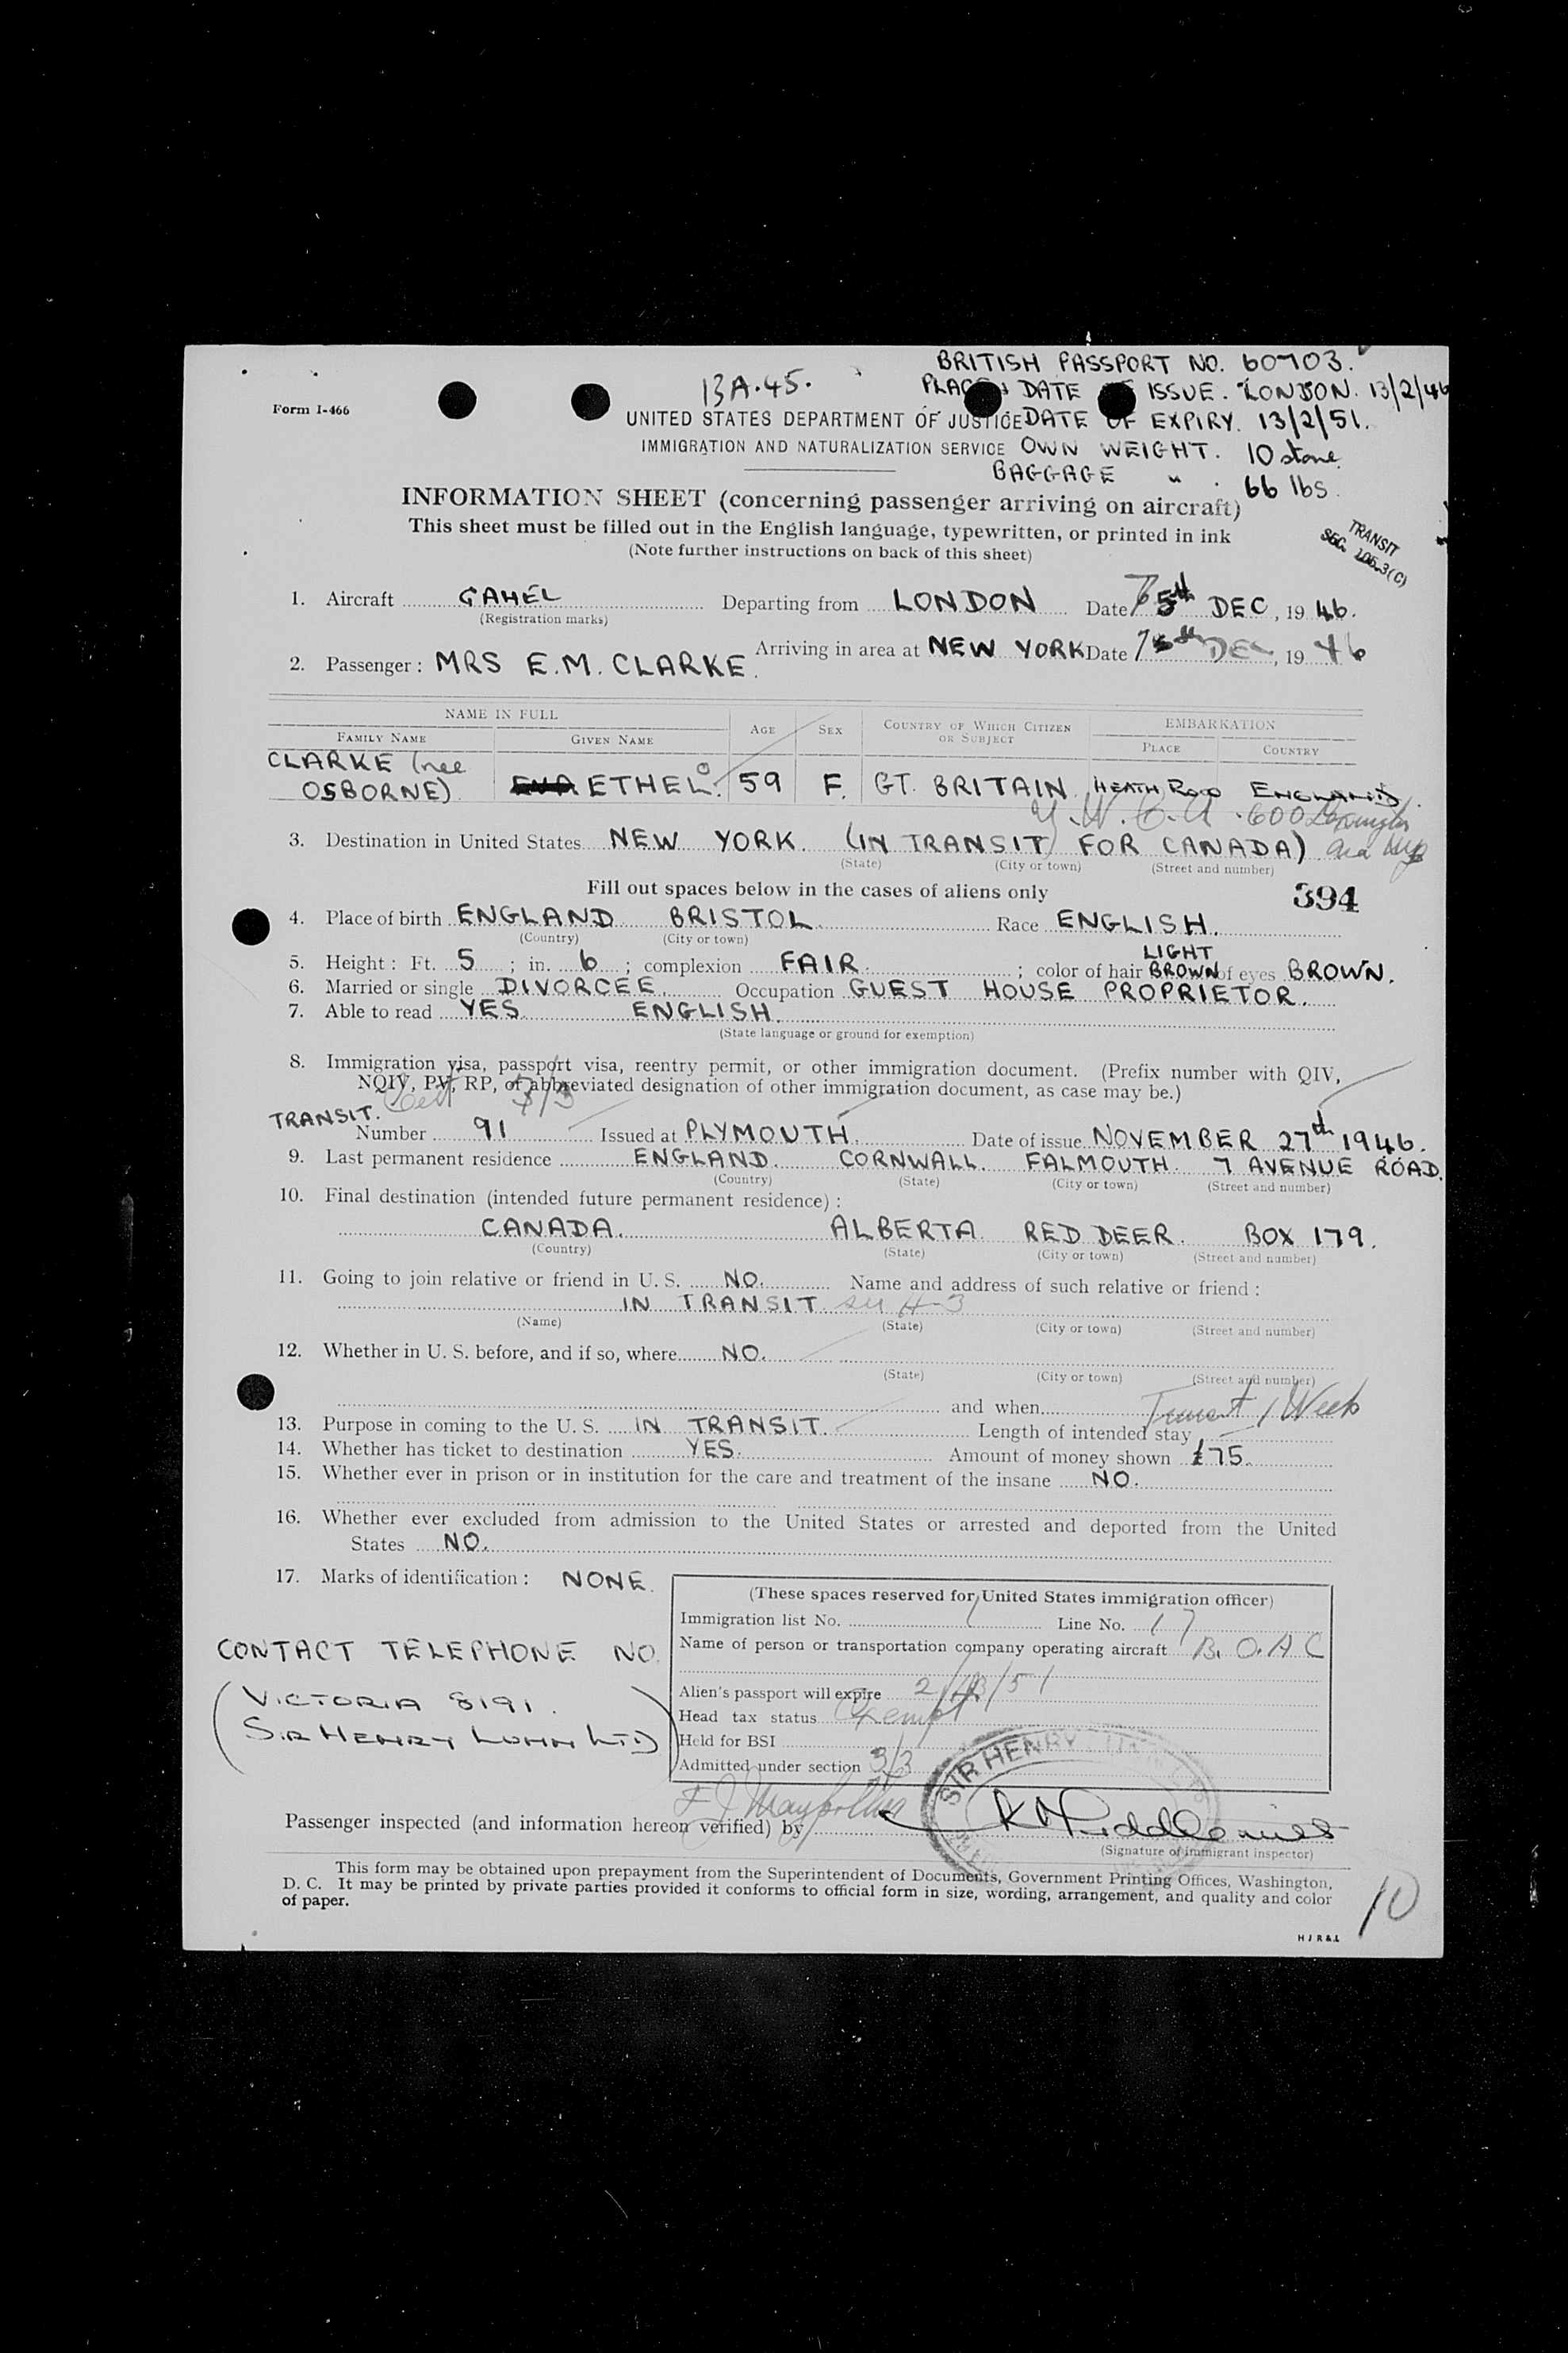 BRITISH PASSPORT NO. 60703.
BA.45.
PLACE & DATE OF ISSUE. LONDON. 13/2/46
Form I-466
UNITED STATES DEPARTMENT OF JUSTICE DATE OF EXPIRY. 13/2/51.
IMMIGRATION AND NATURALIZATION SERVICE OWN WEIGHT. 10 stone.
BAGGAGE " . 66 lbs.
INFORMATION SHEET (concerning passenger arriving on aircraft)
This sheet must be filled out in the English language, typewritten, or printed in ink
(Note further instructions on back of this sheet)
TRANSIT
SEC. 105.3(C)
1. Aircraft GAHEL Departing from LONDON Date 5th DEC, 1946.
(Registration marks)
Arriving in area at NEW YORK Date DEC, 1946
2. Passenger: MRS E.M. CLARKE.
NAME IN FULL AGE SEX COUNTRY OF WHICH CITIZEN OR SUBJECT EMBARKATION
FAMILY NAME GIVEN NAME PLACE COUNTRY
CLARKE (nee
OSBORNE) ETHEL. 59 F. GT. BRITAIN HEATH ROW ENGLAND.
Y.W.C.A. 600 Lexington
3. Destination in United States NEW YORK. (IN TRANSIT) FOR CANADA)
(State) (City or town) (Street and number)
Fill out spaces below in the cases of aliens only 394
4. Place of birth ENGLAND BRISTOL. Race ENGLISH.
(Country) (City or town)
LIGHT
5. Height: Ft. 5; in. 6; complexion FAIR; color of hair BROWN of eyes BROWN.
6. Married or single DIVORCEE. Occupation GUEST HOUSE PROPRIETOR.
7. Able to read YES ENGLISH.
(State language or ground for exemption)
8. Immigration visa, passport visa, reentry permit, or other immigration document. (Prefix number with QIV,
NQIV, PV, RP, or abbreviated designation of other immigration document, as case may be.)
3/3
TRANSIT.
Number 91 Issued at PLYMOUTH. Date of issue NOVEMBER 27th 1946.
9. Last permanent residence ENGLAND. CORNWALL. FALMOUTH. 7 AVENUE ROAD.
(Country) (State) (City or town) (Street and number)
10. Final destination (intended future permanent residence):
CANADA. ALBERTA RED DEER. BOX 179.
(Country) (State) (City or town) (Street and number)
11. Going to join relative or friend in U. S. NO. Name and address of such relative or friend:
IN TRANSIT
(Name) (State) (City or town) (Street and number)
12. Whether in U. S. before, and if so, where NO.
(State) (City or town) (Street and number)
and when
13. Purpose in coming to the U. S. IN TRANSIT. Length of intended stay Transit 1 Week
14. Whether has ticket to destination YES. Amount of money shown £75.
15. Whether ever in prison or in institution for the care and treatment of the insane NO.
16. Whether ever excluded from admission to the United States or arrested and deported from the United
States NO.
17. Marks of identification: NONE.
(These spaces reserved for United States immigration officer)
Immigration list No. 1 Line No. 17
Name of person or transportation company operating aircraft B.O.A.C
Alien's passport will expire 2/13/51
Head tax status Exempt
Held for BSI
Admitted under section 3/3
CONTACT TELEPHONE NO.
(VICTORIA 8191.
SIR HENRY LUNN LTD)
SIR HENRY
Passenger inspected (and information hereon verified) by
(Signature of immigrant inspector)
This form may be obtained upon prepayment from the Superintendent of Documents, Government Printing Offices, Washington,
D. C. It may be printed by private parties provided it conforms to official form in size, wording, arrangement, and quality and color
of paper.
10
H J R & L